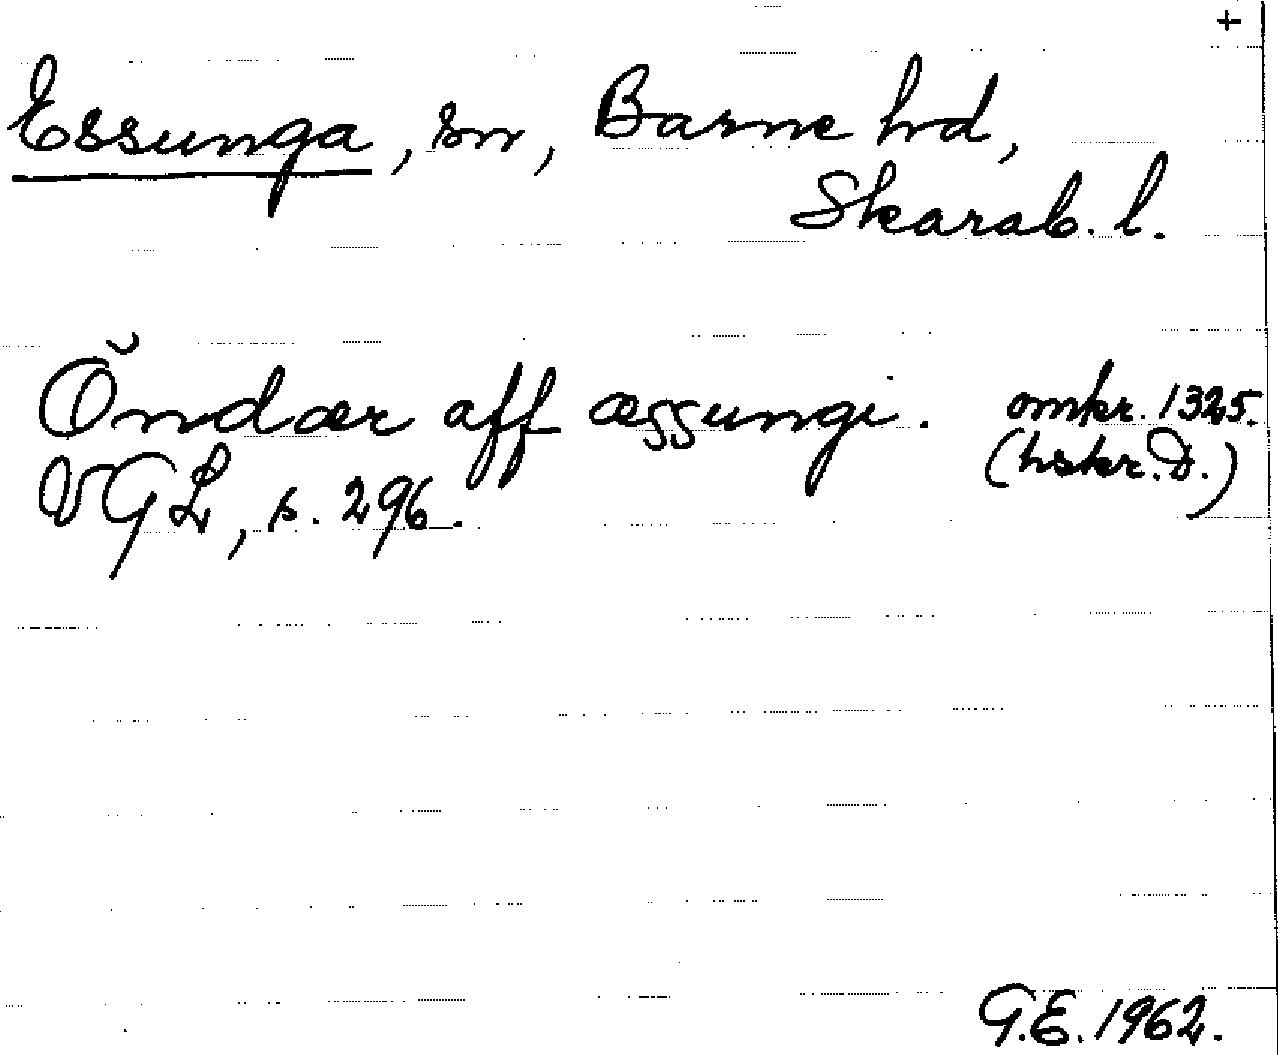 +
Essunga, sn, Barne hd,
Skarab. l.
Öndær aff æssungi. omkr. 1325.
(hskr. D.)
VGL, s. 296.
G.E. 1962.